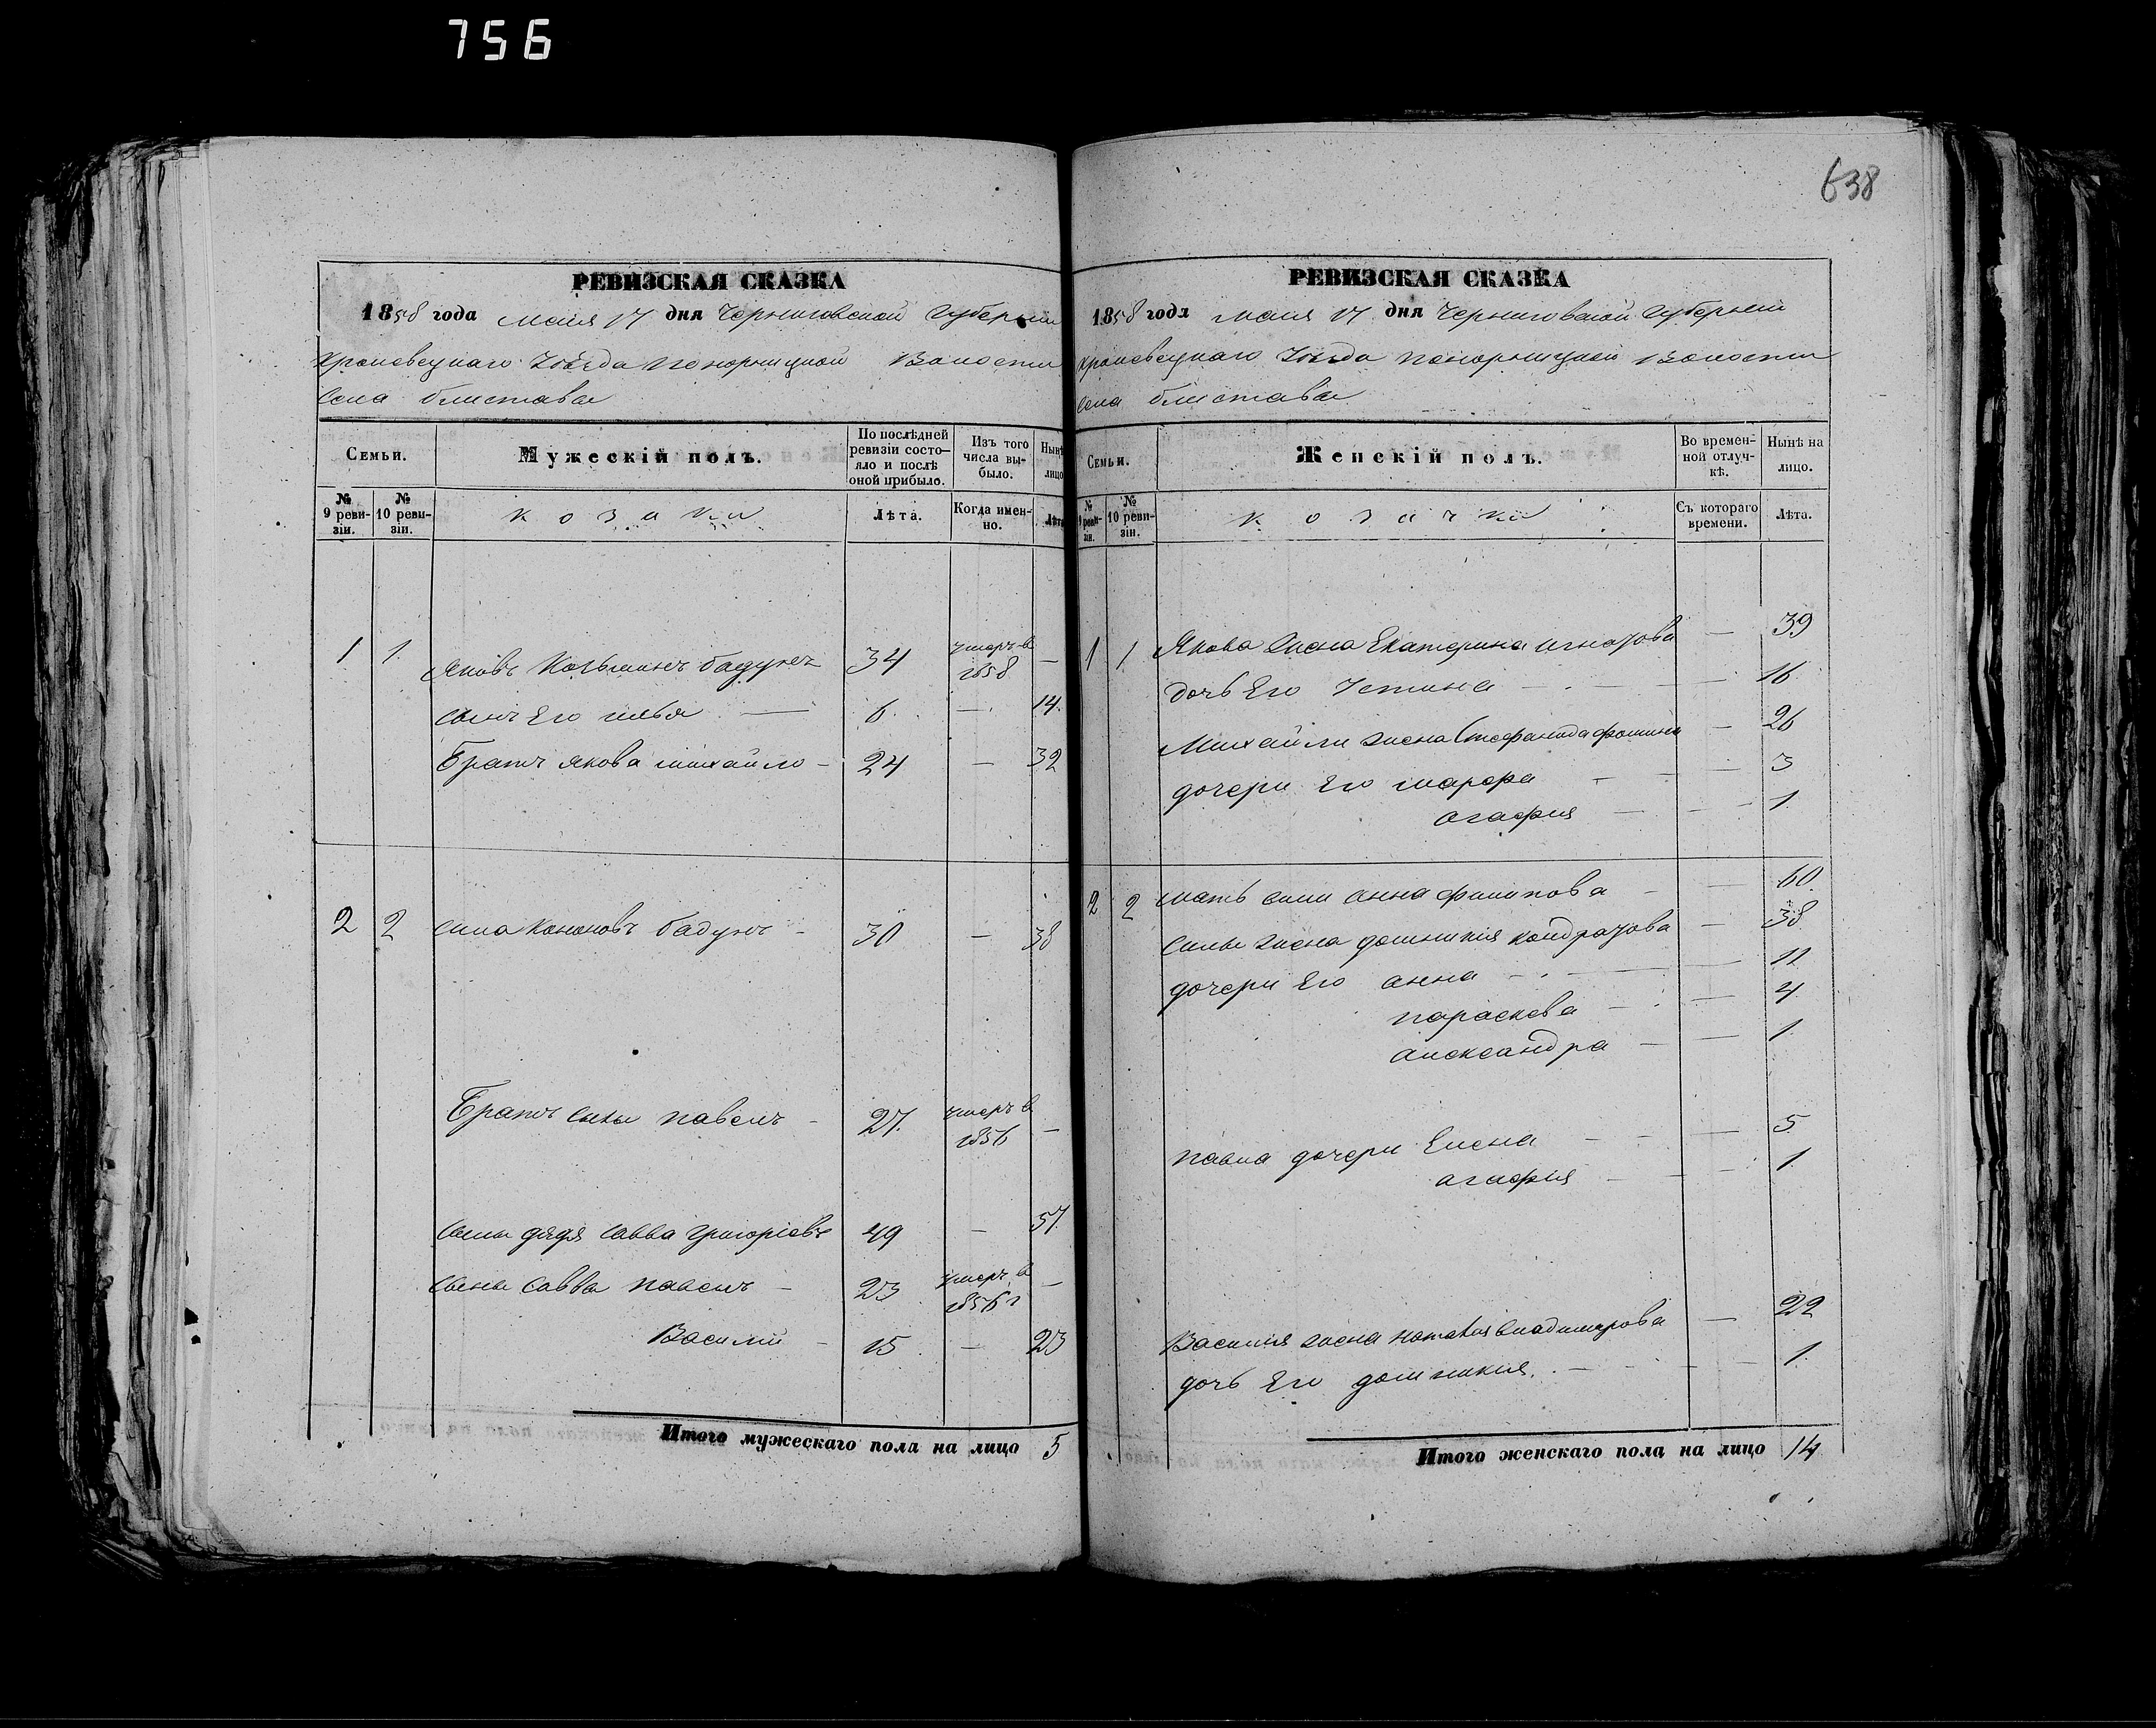 756
638
РЕВИЗСКАЯ СКАЗКА
1858 года Маия 17 дня Черниговской Губернии
Кролевецкаго Уѣзда Понорницкой Волости
Села Блистава
Семьи.
Мужескій полъ.
По послѣдней ревизіи состо-
яло и послѣ
оной прибыло.
Изъ того
числа вы-
было.
Нынѣ
лицо
№
9 реви-
зіи.
№
10 реви-
зіи.
козаки
Лѣта.
Когда имен-
но.
Лѣта
1 1. Яковъ Козьминъ Бадунъ 34 умеръ в 1858 —
сынъ Его илья — 6. —. 14.
Братъ якова михайло — 24 — 32
2 2 сила Кононовъ бадунъ — 30 — 38
Братъ силы павелъ — 27. умеръ в 1856 —
силы дядя савва григоріевъ 49 — 57.
сыны савва павелъ — 23 умеръ в 1856 г —
Василій — 15. — 23
Итого мужескаго пола на лицо 5
РЕВИЗСКАЯ СКАЗКА
1858 года Маия 17 дня Черниговской Губернии
Кролевецкаго Уѣзда Понорницкой Волости
Села Блистава
Семьи.
Женскій полъ.
Во времен-
ной отлуч-
кѣ.
Нынѣ на
лицо.
№
9 реви-
зіи.
№
10 реви-
зіи.
козачки
Съ котораго
времени.
Лѣта.
1 1 Якова жена Екатерина игнатова — 39
дочь Его Устина — 16.
Михайли жена Стефанида фомина — 26
дочери Его марфа — 3
агафия — 1.
2 2 мать сили анна филипова — 60.
силы жена домникія кондратова — 38.
дочери Его анна — 11
параскева — 4.
александра — 1.
павла дочери Елена — 5.
агафія — 1.
Василия жена наталия владимирова — 22
дочь Его домникия. — 1.
Итого женскаго пола на лицо 14